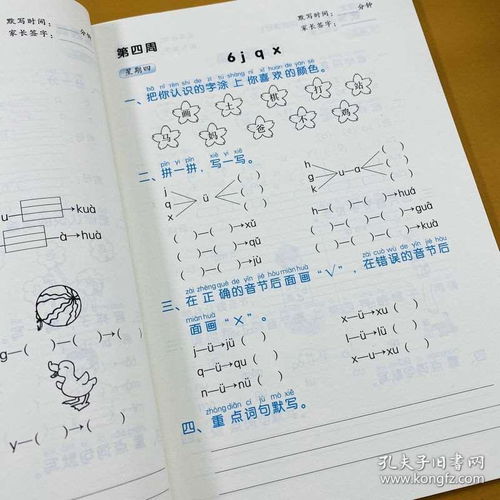 默写时间： 分钟
家长签字：
u— →kuà
—à→huà
g—( )—( )→( )
y—( )→( )
默写时间： 分钟
家长签字：
第四周
星期四
6 j q x
bǎ nǐ rèn shi de zì tú shàng nǐ xǐ huan de yán sè
一、把你认识的字涂上你喜欢的颜色。
画 土 棋 打 站
马 妈 爸 不 鸡
pīn yi pīn xiě yi xiě
二、拼一拼，写一写。
j q x ü ( ) ( ) ( )
h g k u—a ( ) ( ) ( )
( )—( )→xǔ
( )—( )→qǔ
( )—( )→jù
h—( )—( )→huá
( )—( )—( )→guā
( )—( )—( )→kuà
zài zhèng què de yīn jié hòu miàn huà zài cuò wù de yīn jié hòu
三、在正确的音节后面画“√”，在错误的音节后
miàn huà
面画“×”。
j—ü→jü ( ) x—ü→xu ( )
q—ü→qu ( ) l—ü→lü ( )
n—ü→nü ( ) x—u→xu ( )
zhòng diǎn cí jù mò xiě
四、重点词句默写。
孔夫子旧书网
www.kongfz.com